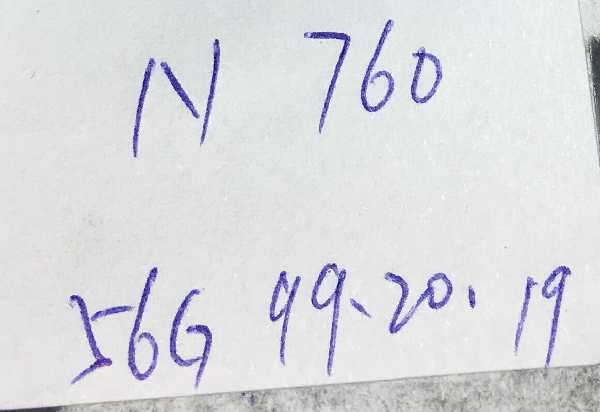 N 760
56G 99.20.19